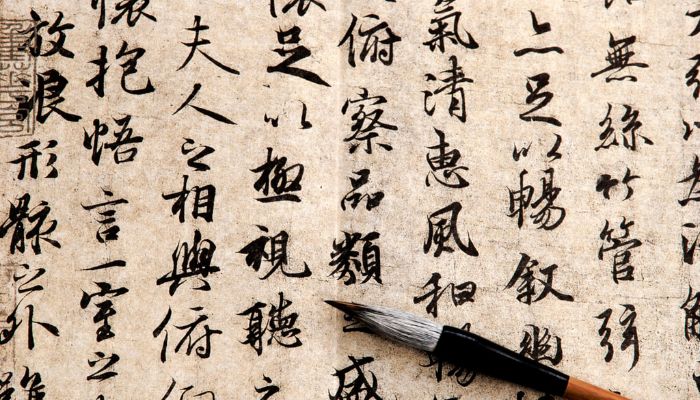 無絲竹管弦
亦足以暢叙幽
氣清惠風和暢
俯察品類之盛
懷足以極視聽之
夫人之相與俯仰
懷抱悟言一室之
放浪形骸之外雖